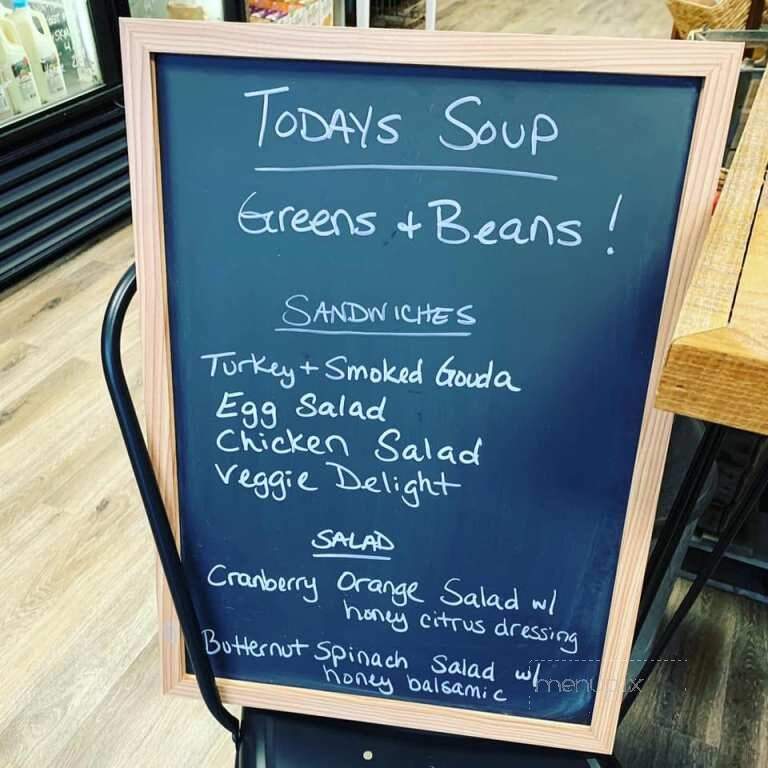 TODAYS SOUP
Greens + Beans !
SANDWICHES
Turkey + Smoked Gouda
Egg Salad
Chicken Salad
Veggie Delight
SALAD
Cranberry Orange Salad w/
honey citrus dressing
Butternut Spinach Salad w/
honey balsamic